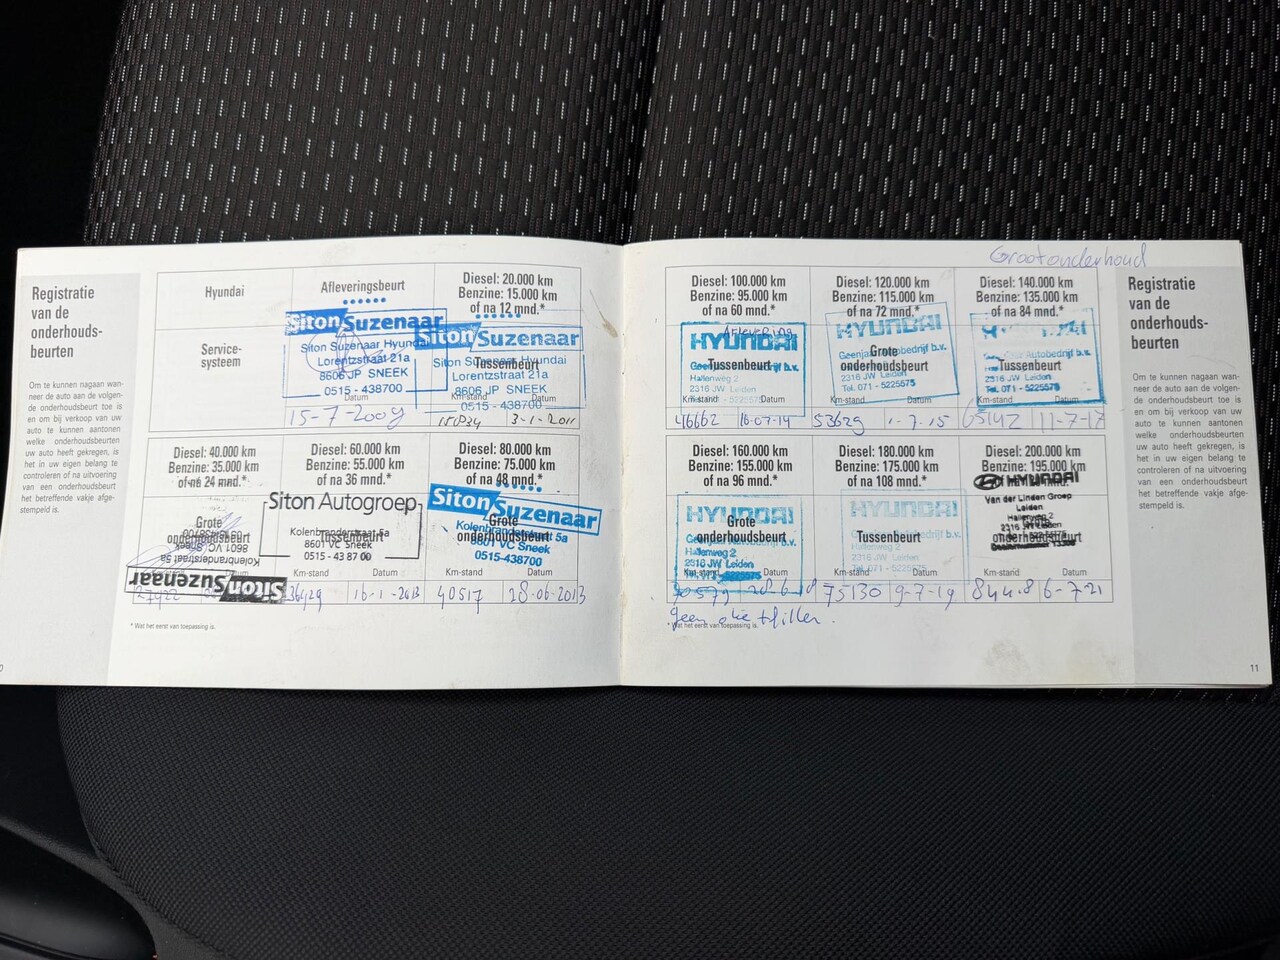 Registratie
van de
onderhouds-
beurten
Om te kunnen nagaan wan-
neer de auto aan de volgen-
de onderhoudsbeurt toe is
en om bij verkoop van uw
auto te kunnen aantonen
welke onderhoudsbeurten
uw auto heeft gekregen, is
het in uw eigen belang te
controleren of na uitvoering
van een onderhoudsbeurt
het betreffende vakje afge-
stempeld is.
Hyundai
Service-
systeem
Afleveringsbeurt
Siton Suzenaar
Siton Suzenaar Hyundai
Lorentzstraat 21a
8606 JP SNEEK
0515 - 438700
Datum
15-7-2009
Diesel: 20.000 km
Benzine: 15.000 km
of na 12 mnd.*
Siton Suzenaar
Siton Suzenaar Hyundai
Tussenbeurt
Lorentzstraat 21a
8606 JP SNEEK
0515 - 438700
Km-stand Datum
3-1-2011
Diesel: 40.000 km
Benzine: 35.000 km
of na 24 mnd.*
Grote
onderhoudsbeurt
Kolenbranderstraat 5a
8601 VC Sneek
Siton Suzenaar
27422
Diesel: 60.000 km
Benzine: 55.000 km
of na 36 mnd.*
Siton Autogroep
Kolenbranderstraat 5a
Tussenbeurt
8601 VC Sneek
0515 - 43 87 00
Km-stand Datum
36429 16-1-2013
Diesel: 80.000 km
Benzine: 75.000 km
of na 48 mnd.*
Siton Suzenaar
Grote
onderhoudsbeurt
Kolenbranderstraat 5a
8601 VC Sneek
0515-438700
Km-stand Datum
40517 18-06-2013
* Wat het eerst van toepassing is.
Grootonderhoud
Diesel: 100.000 km
Benzine: 95.000 km
of na 60 mnd.*
Aflevering
HYUNDAI
Tussenbeurt
Hallenweg 2
2316 JW Leiden
Km-stand Datum
46662 16-07-14
Diesel: 120.000 km
Benzine: 115.000 km
of na 72 mnd.*
HYUNDAI
Grote
onderhoudsbeurt
2316 JW Leiden
Tel. 071 - 5225575
Km-stand Datum
53629 1-7-15
Diesel: 140.000 km
Benzine: 135.000 km
of na 84 mnd.*
Tussenbeurt
2316 JW Leiden
Tel. 071 - 5225575
Km-stand Datum
65142 11-7-17
Diesel: 160.000 km
Benzine: 155.000 km
of na 96 mnd.*
HYUNDAI
Grote
onderhoudsbeurt
Hallenweg 2
2316 JW Leiden
Km-stand Datum
Diesel: 180.000 km
Benzine: 175.000 km
of na 108 mnd.*
HYUNDAI
Tussenbeurt
Hallenweg 2
2316 JW Leiden
Km-stand Datum
75130 9-7-19
Diesel: 200.000 km
Benzine: 195.000 km
HYUNDAI
Van der Linden Groep
Leiden
Hallenweg 2
2316 JW Leiden
Grote
onderhoudsbeurt
Km-stand Datum
6-7-21
geen olie + filter.
* Wat het eerst van toepassing is.
Registratie
van de
onderhouds-
beurten
Om te kunnen nagaan wan-
neer de auto aan de volgen-
de onderhoudsbeurt toe is
en om bij verkoop van uw
auto te kunnen aantonen
welke onderhoudsbeurten
uw auto heeft gekregen, is
het in uw eigen belang te
controleren of na uitvoering
van een onderhoudsbeurt
het betreffende vakje afge-
stempeld is.
11